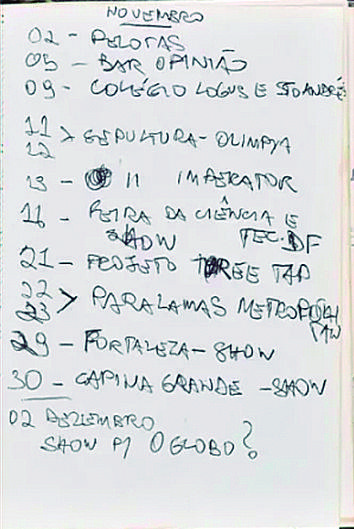 NOVEMBRO
02 - PELOTAS
05 - BAR OPINIÃO
09 - COLÉGIO LOGUS E STO ANDRÉ
11 > SEPULTURA - OLIMPYA
12
13 - 11 IMPERATOR
16 - FEIRA DA CIÊNCIA E
SHOW TEC. DF
21 - PROJETO TREE TAP
22 > PARALAMAS METROPOLI
23 TAN
29 - FORTALEZA - SHOW
30 - CAPINA GRANDE - SHOW
02 DEZEMBRO
SHOW P/ O GLOBO?